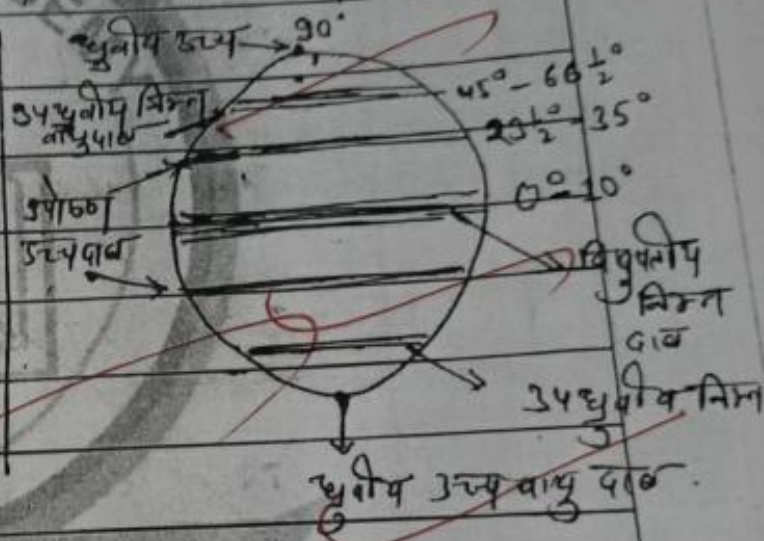 ध्रुवीय उच्च
90°
उपध्रुवीय निम्न
वायुदाब
45° - 66 1/2°
23 1/2° 35°
उपोष्ण
उच्चदाब
0° - 10°
विषुवतीय
निम्न
दाब
उपध्रुवीय निम्न
ध्रुवीय उच्च वायु दाब